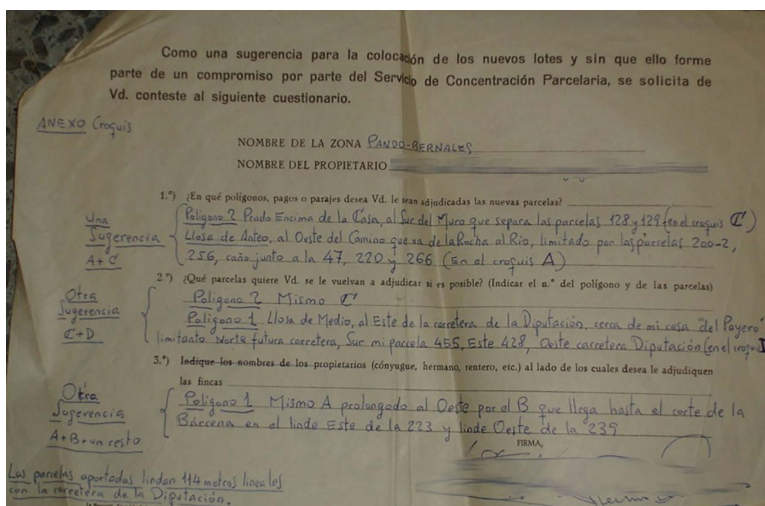 Como una sugerencia para la colocación de los nuevos lotes y sin que ello forme
parte de un compromiso por parte del Servicio de Concentración Parcelaria, se solicita de
Vd. conteste al siguiente cuestionario.
ANEXO Croquis
NOMBRE DE LA ZONA PANDO-BERNALES
NOMBRE DEL PROPIETARIO
1.º) ¿En qué polígonos, pagos o parajes desea Vd. le sean adjudicadas las nuevas parcelas?
Una
Sugerencia
A+C
Polígono 2 Prado Encima de la Casa, al Sur del Muro que separa las parcelas 128 y 129 (en el croquis C)
Llosa de Anteo, al Oeste del Camino que va de la Rocha al Rio, limitado por las parcelas 200-2,
256, caño junto a la 47, 220 y 266 (En el croquis A)
2.º) ¿Qué parcelas quiere Vd. se le vuelvan a adjudicar si es posible? (Indicar el n.º del polígono y de las parcelas)
Otra
Sugerencia
C+D
Polígono 2 Mismo C
Polígono 1 Llosa de Medio, al Este de la carretera de la Diputación, cerca de mi casa "del Poyero"
limitante Norte futura carretera, Sur mi parcela 455, Este 428, Oeste carretera Diputación (en el croquis
3.º) Indique los nombres de los propietarios (cónyuge, hermano, rentero, etc.) al lado de los cuales desea le adjudiquen
las fincas
Otra
Sugerencia
A+B+un resto
Polígono 1 Mismo A prolongado al Oeste por el B que llega hasta el corte de la
Bárcena en el linde Este de la 223 y linde Oeste de la 239
FIRMA,
Las parcelas aportadas lindan 114 metros lineales
con la carretera de la Diputación.